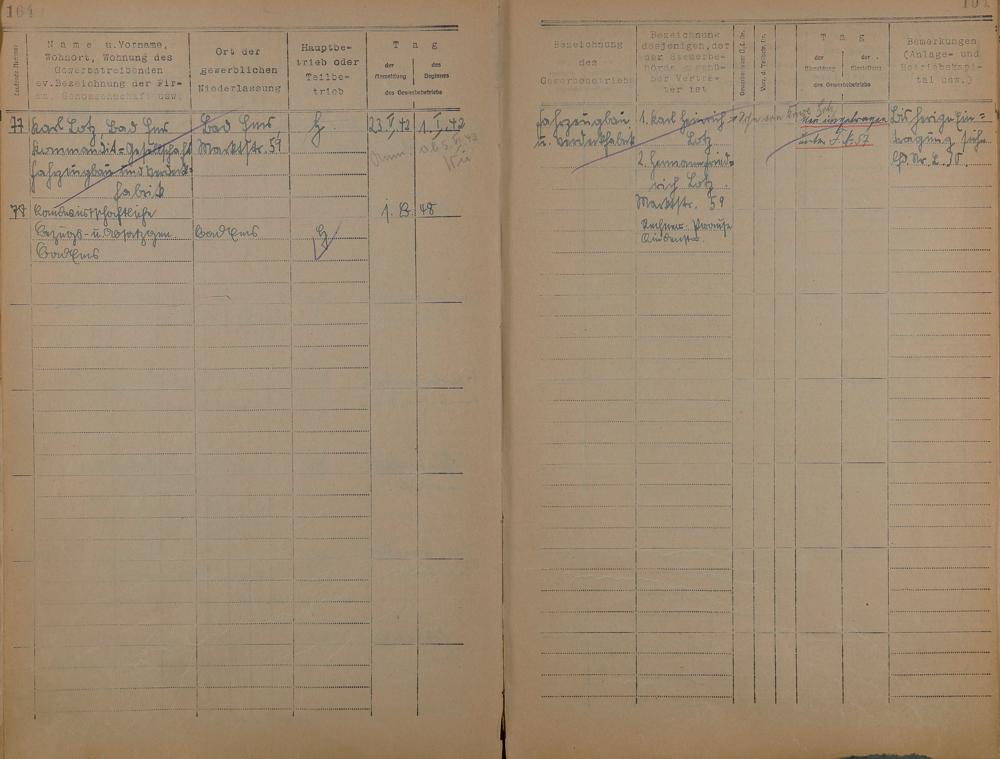 164
Laufende Nummer
Name u. Vorname,
Wohnort, Wohnung des
Gewerbetreibenden
ev. Bezeichnung der Fir-
ma, Genossenschaft usw.
Ort der
gewerblichen
Niederlassung
Hauptbe-
trieb oder
Teilbe-
trieb
Tag
der
Anmeldung
des
Beginnes
des Gewerbebetriebs
77
Karl Lotz, Bad Ems
Kommandit=Gesellschaft
Fahrzeugbau und Verdeck-
fabrik
Bad Ems,
Marktstr. 59
H.
23.I.42
1.I.42
78
Landwirtschaftliche
Bezugs- u. Absatzgen.
Bad Ems
Bad Ems
H
48
Bezeichnung
des
Gewerbebetriebs
Bezeichnung
desjenigen, der
der Gewerbebe-
hörde gegenü-
ber Vertre-
ter ist
Tag
der
Anmeldung
der
Einstellung
des Gewerbebetriebs
Bemerkungen
(Anlage- und
Betriebskapi-
tal usw.)
Fahrzeugbau
u. Verdeckfabrik
1. Karl Heinrich
Lotz
2. Hermann Fried=
rich Lotz
Marktstr. 59
Rechner
neu eingetragen
unter
Bisherige Ein=
tragung siehe
lfd. Nr.